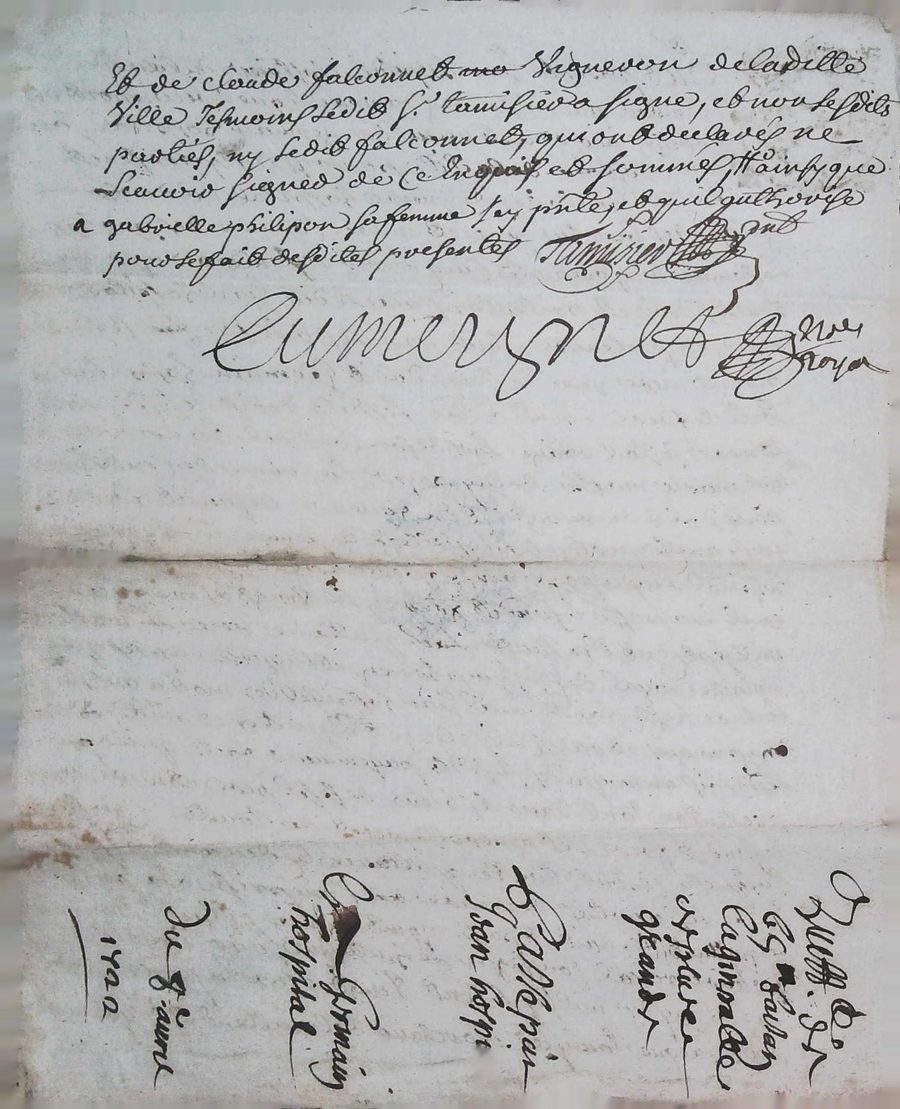 Et de claude falconnet vigneron de laditte
Ville Tesmoins ledit Sr. tamisier a signe, et non lesdits
parties, ny ledit falconnet, qui ont declarés ne
Scauoir signer de ce Enquis et sommés, ainsy que
a gabrielle philipon sa femme Icy pnte, et quil authorise
pour le fait desdites presentes Tamisier pnt
Cumerynet Nore
royal
Quitt. de
grande
Passé par
Jean hospi
Germain
hospital
du 8e auril
1722